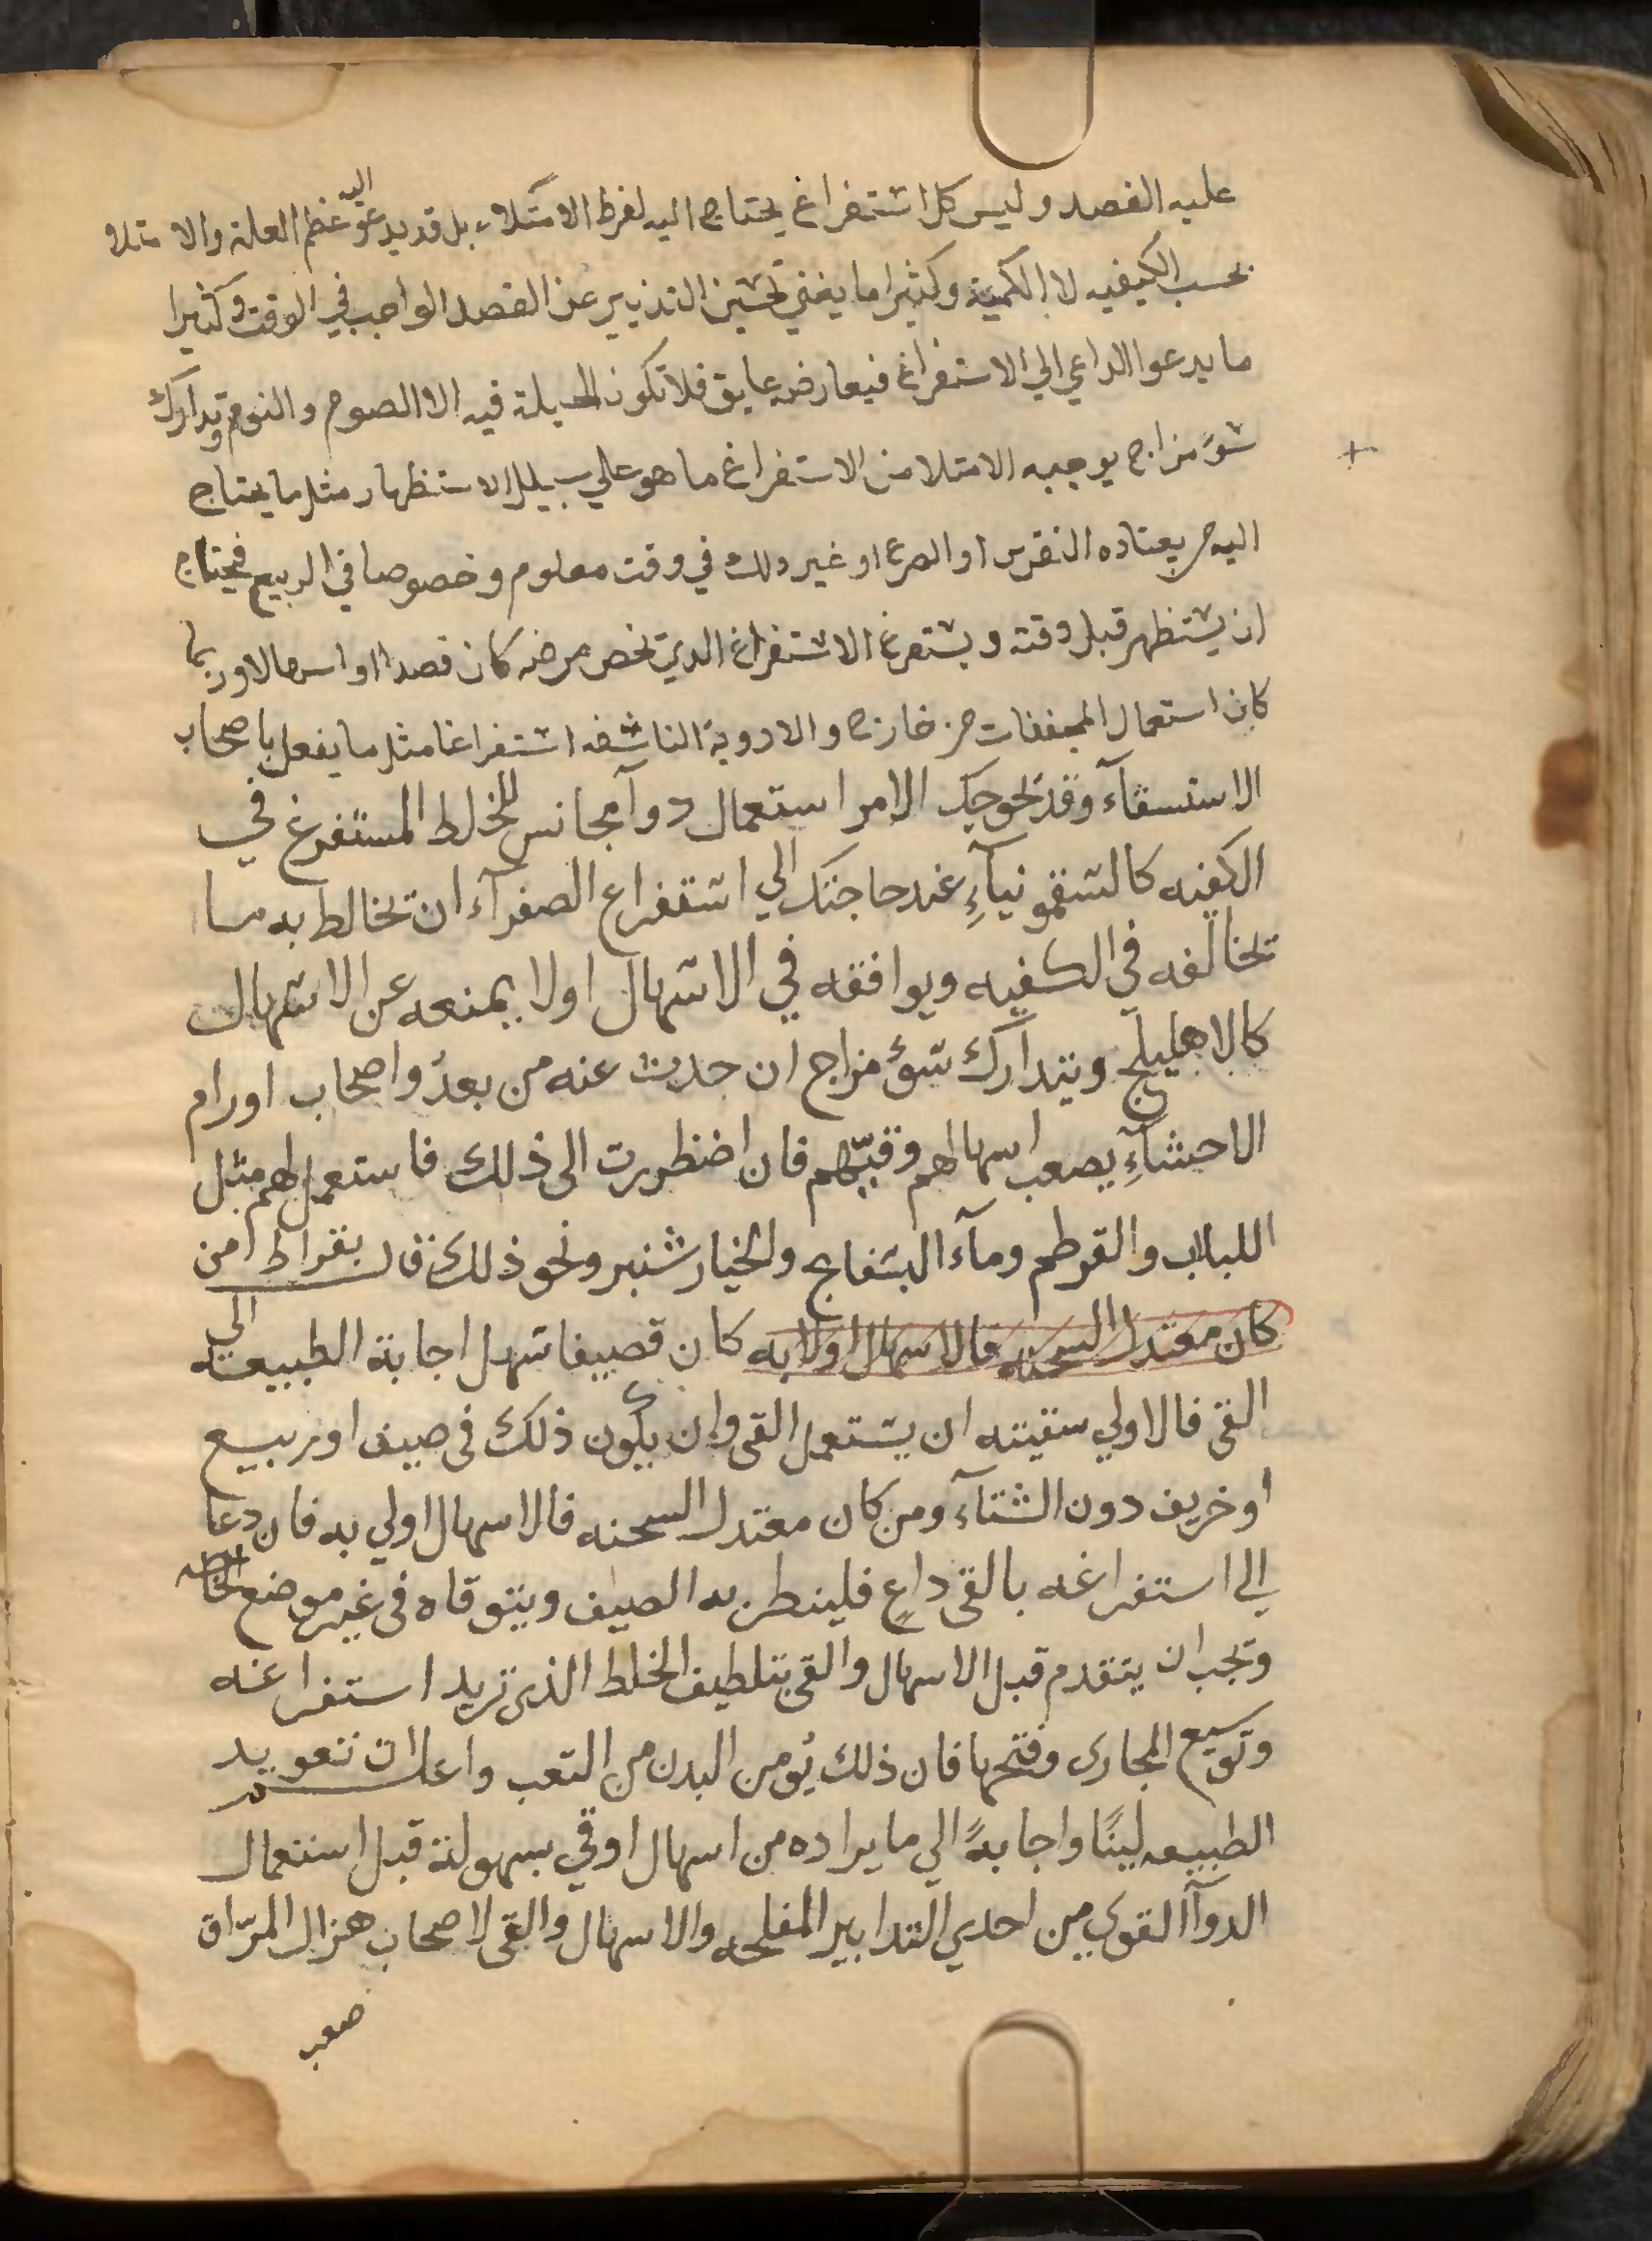 عليه الفصد وليس كل استفراغ يحتاج اليه لفرط الامتلاء بل قد يدعو اليه عظم العلة والامتلا
بحسب الكيفيه لا الكمية وكثيرا ما يغني تحسين التدبير عن الفصد الواجب في الوقت وكثيرا
ما يدعوا الداعي الي الاستفراغ فيعارضه عايق فلا تكون الحيلة فيه الا الصوم والنوم وتدارك
سوء مزاج يوجبه الامتلا من الاستفراغ ما هو علي سبيل الاستظهار مثل ما يحتاج
اليه من يعتاده النقرس او الصرع او غير ذلك في وقت معلوم وخصوصا في الربيع فيحتاج
ان يستظهر قبل وقته ويستفرغ الاستفراغ الدي يخص مرضه كان فصدا او اسهالا وربما
كان استعمال المجففات من خارج والادوية الناشفه استفراغا مثل ما يفعل باصحاب
الاستسقآء وقد يحوجك الامر استعمال دوآ مجانس للخلط المستفرغ في
الكفيه كالسقمونيآء عند حاجتك الي استفراع الصفرآء ان تخالط به ما
تخالفه في الكفيه ويوافقه في الاسهال اولا يمنعه عن الاسهال
كالاهليلج وتتدارك سوء مزاج ان حدث عنه من بعد واصحاب اورام
الاحشآء يصعب اسهالهم وقيّهم فان اضظررت الى ذلك فاستعمل لهم مثل
اللبلاب والقرطم ومآء البسفايج والخيار شنبر ونحو ذلك قال بقراط من
كان معتدل السحنه فالاسهال اولا به كان قصيفا سهل اجابة الطبيعة الي
القى فالاولي سقيته ان يستعمل القى وان يكون ذلك فى صيف او ربيع
او خريف دون الشتآء ومن كان معتدل السحنه فالاسهال اولي به فان دعا
الي استفراغه بالقى داعٍ فلينطر به الصيف ويتوقاه فى غير موضع الحاجه
وتجب ان يتقدم قبل الاسهال والقى بتلطيف الخلط الذى تريد استفراغه
وتوسيع المجارى وفتحها فان ذلك يُومن البدن من التعب واعلم ان تعويد
الطبيعه لينًا واجابةً الي ما يراده من اسهال او قي بسهولة قبل استعمال
الدوآ القوي من احدي التدابير المفلحه والاسهال والقى لاصحاب هزال المرّاق
صعب